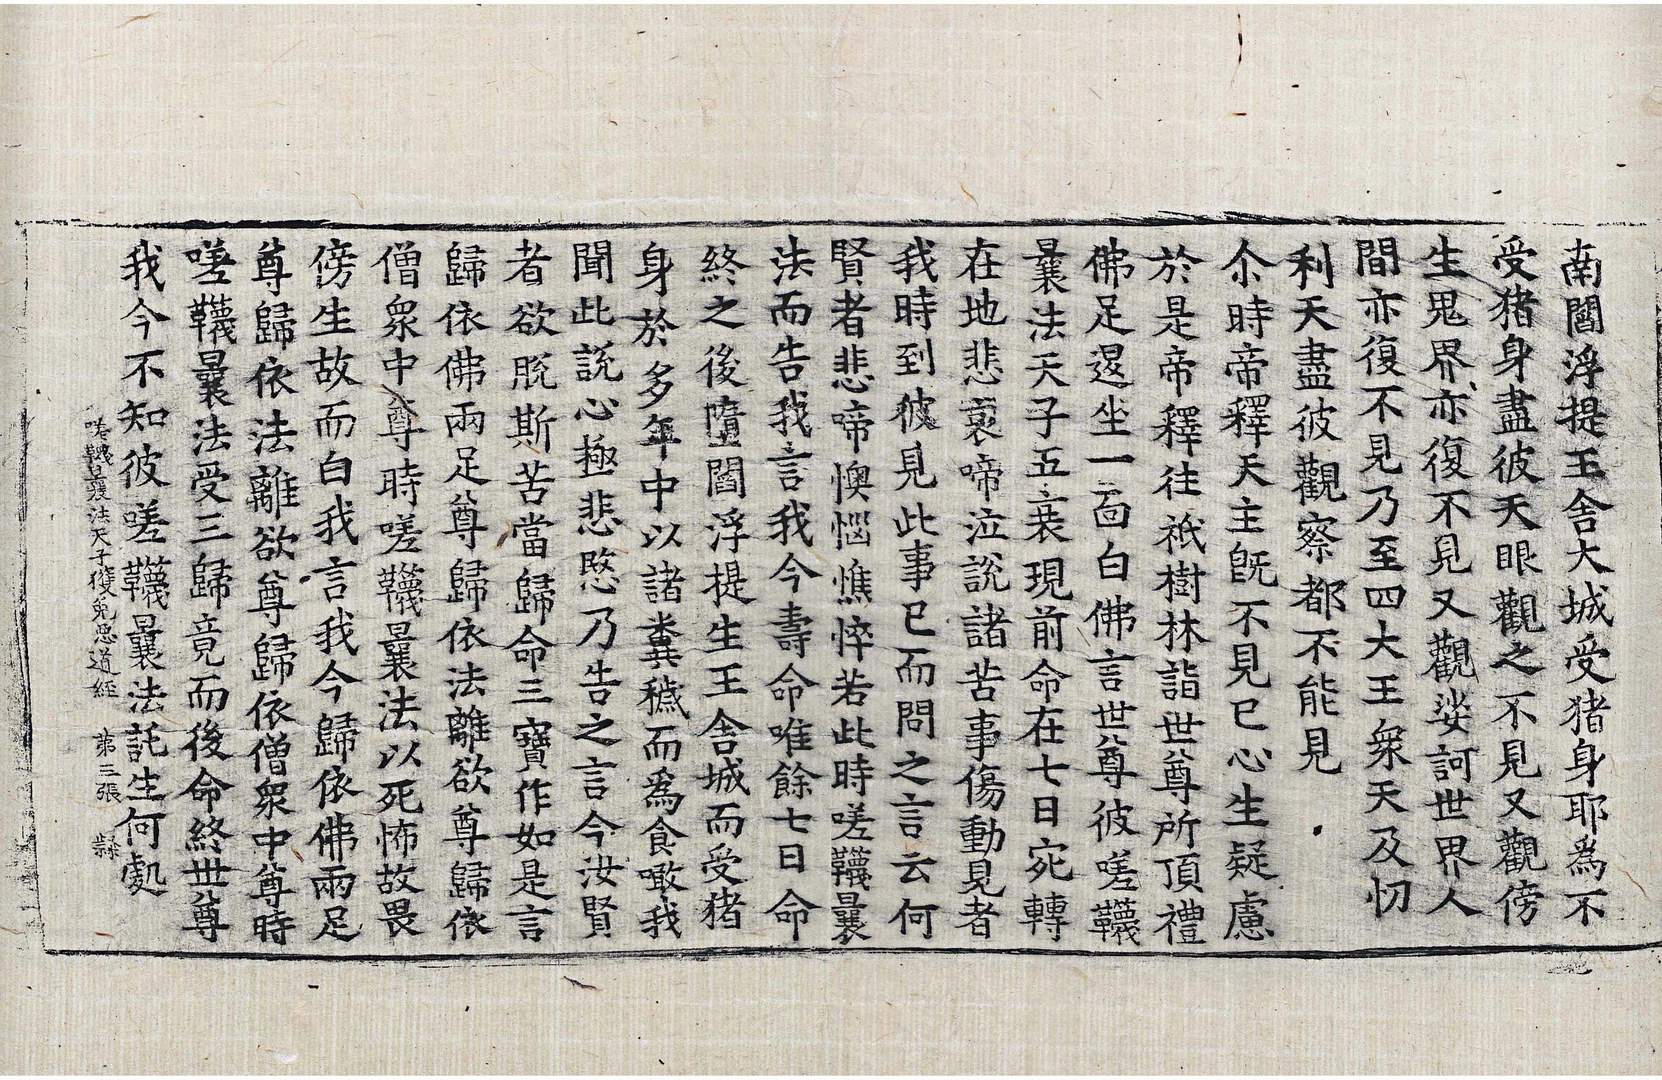 南閻浮提王舎大城受猪身耶爲不
受猪身盡彼天眼觀之不見又觀傍
生鬼界亦復不見又觀娑訶世界人
間亦復不見乃至四大王衆天及忉
利天盡彼觀察都不能見
尒時帝釋天主旣不見已心生疑慮
於是帝釋往祇樹林詣世尊所頂禮
佛足退坐一面白佛言世尊彼嗟韈
曩法天子五衰現前命在七日宛轉
在地悲哀啼泣說諸苦事傷動見者
我時到彼見此事已而問之言云何
賢者悲啼懊惱憔悴若此時嗟韈曩
法而告我言我今壽命唯餘七日命
終之後墮閻浮提生王舎城而受猪
身於多年中以諸糞穢而爲食噉我
聞此說心極悲愍乃告之言今汝賢
者欲脫斯苦當歸命三寶作如是言
歸依佛兩足尊歸依法離欲尊歸依
僧衆中尊時嗟韈曩法以死怖故畏
傍生故而白我言我今歸依佛兩足
尊歸依法離欲尊歸依僧衆中尊時
嗟韈曩法受三歸竟而後命終世尊
我今不知彼嗟韈曩法託生何處
嗟韈曩法天子獲免惡道經 第三張 隸